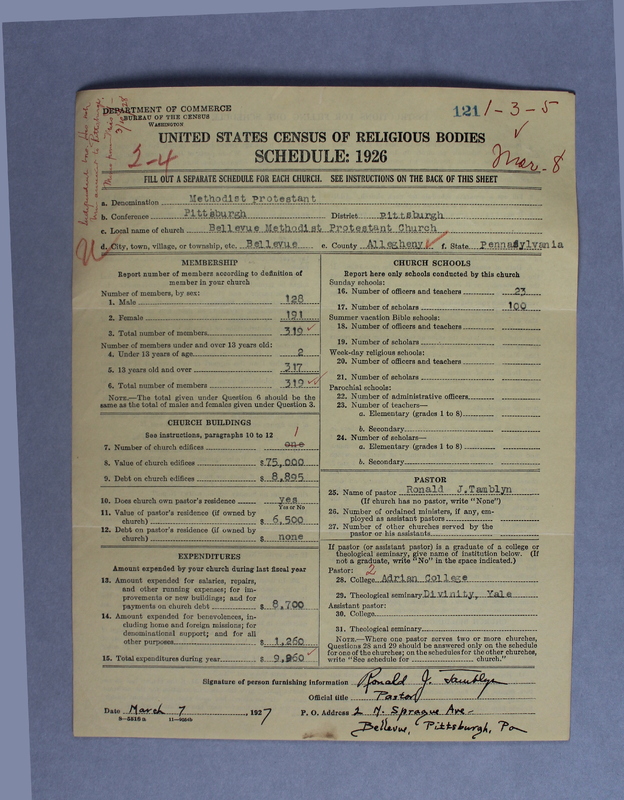 DEPARTMENT OF COMMERCE
BUREAU OF THE CENSUS
WASHINGTON
121 1-3-5
UNITED STATES CENSUS OF RELIGIOUS BODIES
2-4
SCHEDULE: 1926
Mar-8
FILL OUT A SEPARATE SCHEDULE FOR EACH CHURCH. SEE INSTRUCTIONS ON THE BACK OF THIS SHEET
a. Denomination Methodist Protestant
b. Conference Pittsburgh District Pittsburgh
c. Local name of church Bellevue Methodist Protestant Church
d. City, town, village, or township, etc. Bellevue e. County Allegheny f. State Pennsylvania
MEMBERSHIP
Report number of members according to definition of
member in your church
Number of members, by sex:
1. Male 128
2. Female 191
3. Total number of members 319
Number of members under and over 13 years old:
4. Under 13 years of age 2
5. 13 years old and over 317
6. Total number of members 319
NOTE.—The total given under Question 6 should be the
same as the total of males and females given under Question 3.
CHURCH BUILDINGS
See instructions, paragraphs 10 to 12
1
7. Number of church edifices one
8. Value of church edifices $75,000
9. Debt on church edifices $8,895
10. Does church own pastor's residence yes
Yes or No
11. Value of pastor's residence (if owned by
church) $6,500
12. Debt on pastor's residence (if owned by
church) $none
EXPENDITURES
Amount expended by your church during last fiscal year
13. Amount expended for salaries, repairs,
and other running expenses; for im-
provements or new buildings; and for
payments on church debt $8,700
14. Amount expended for benevolences, in-
cluding home and foreign missions; for
denominational support; and for all
other purposes $1,260
15. Total expenditures during year $9,960
CHURCH SCHOOLS
Report here only schools conducted by this church
Sunday schools:
16. Number of officers and teachers 23
17. Number of scholars 100
Summer vacation Bible schools:
18. Number of officers and teachers
19. Number of scholars
Week-day religious schools:
20. Number of officers and teachers
21. Number of scholars
Parochial schools:
22. Number of administrative officers
23. Number of teachers—
a. Elementary (grades 1 to 8)
b. Secondary
24. Number of scholars—
a. Elementary (grades 1 to 8)
b. Secondary
PASTOR
25. Name of pastor Ronald J. Tamblyn
(If church has no pastor, write "None")
26. Number of ordained ministers, if any, em-
ployed as assistant pastors
27. Number of other churches served by the
pastor or his assistants
If pastor (or assistant pastor) is a graduate of a college or
theological seminary, give name of institution below. (If
not a graduate, write "No" in the space indicated.)
Pastor: 2
28. College Adrian College
29. Theological seminary Divinity, Yale
Assistant pastor:
30. College
31. Theological seminary
NOTE.—Where one pastor serves two or more churches,
Questions 28 and 29 should be answered only on the schedule
for one of the churches; on the schedules for the other churches,
write "See schedule for church."
Signature of person furnishing information Ronald J. Tamblyn
Official title Pastor
Date March 7, 1927 P. O. Address 2 N. Sprague Ave-
Bellevue, Pittsburgh, Pa